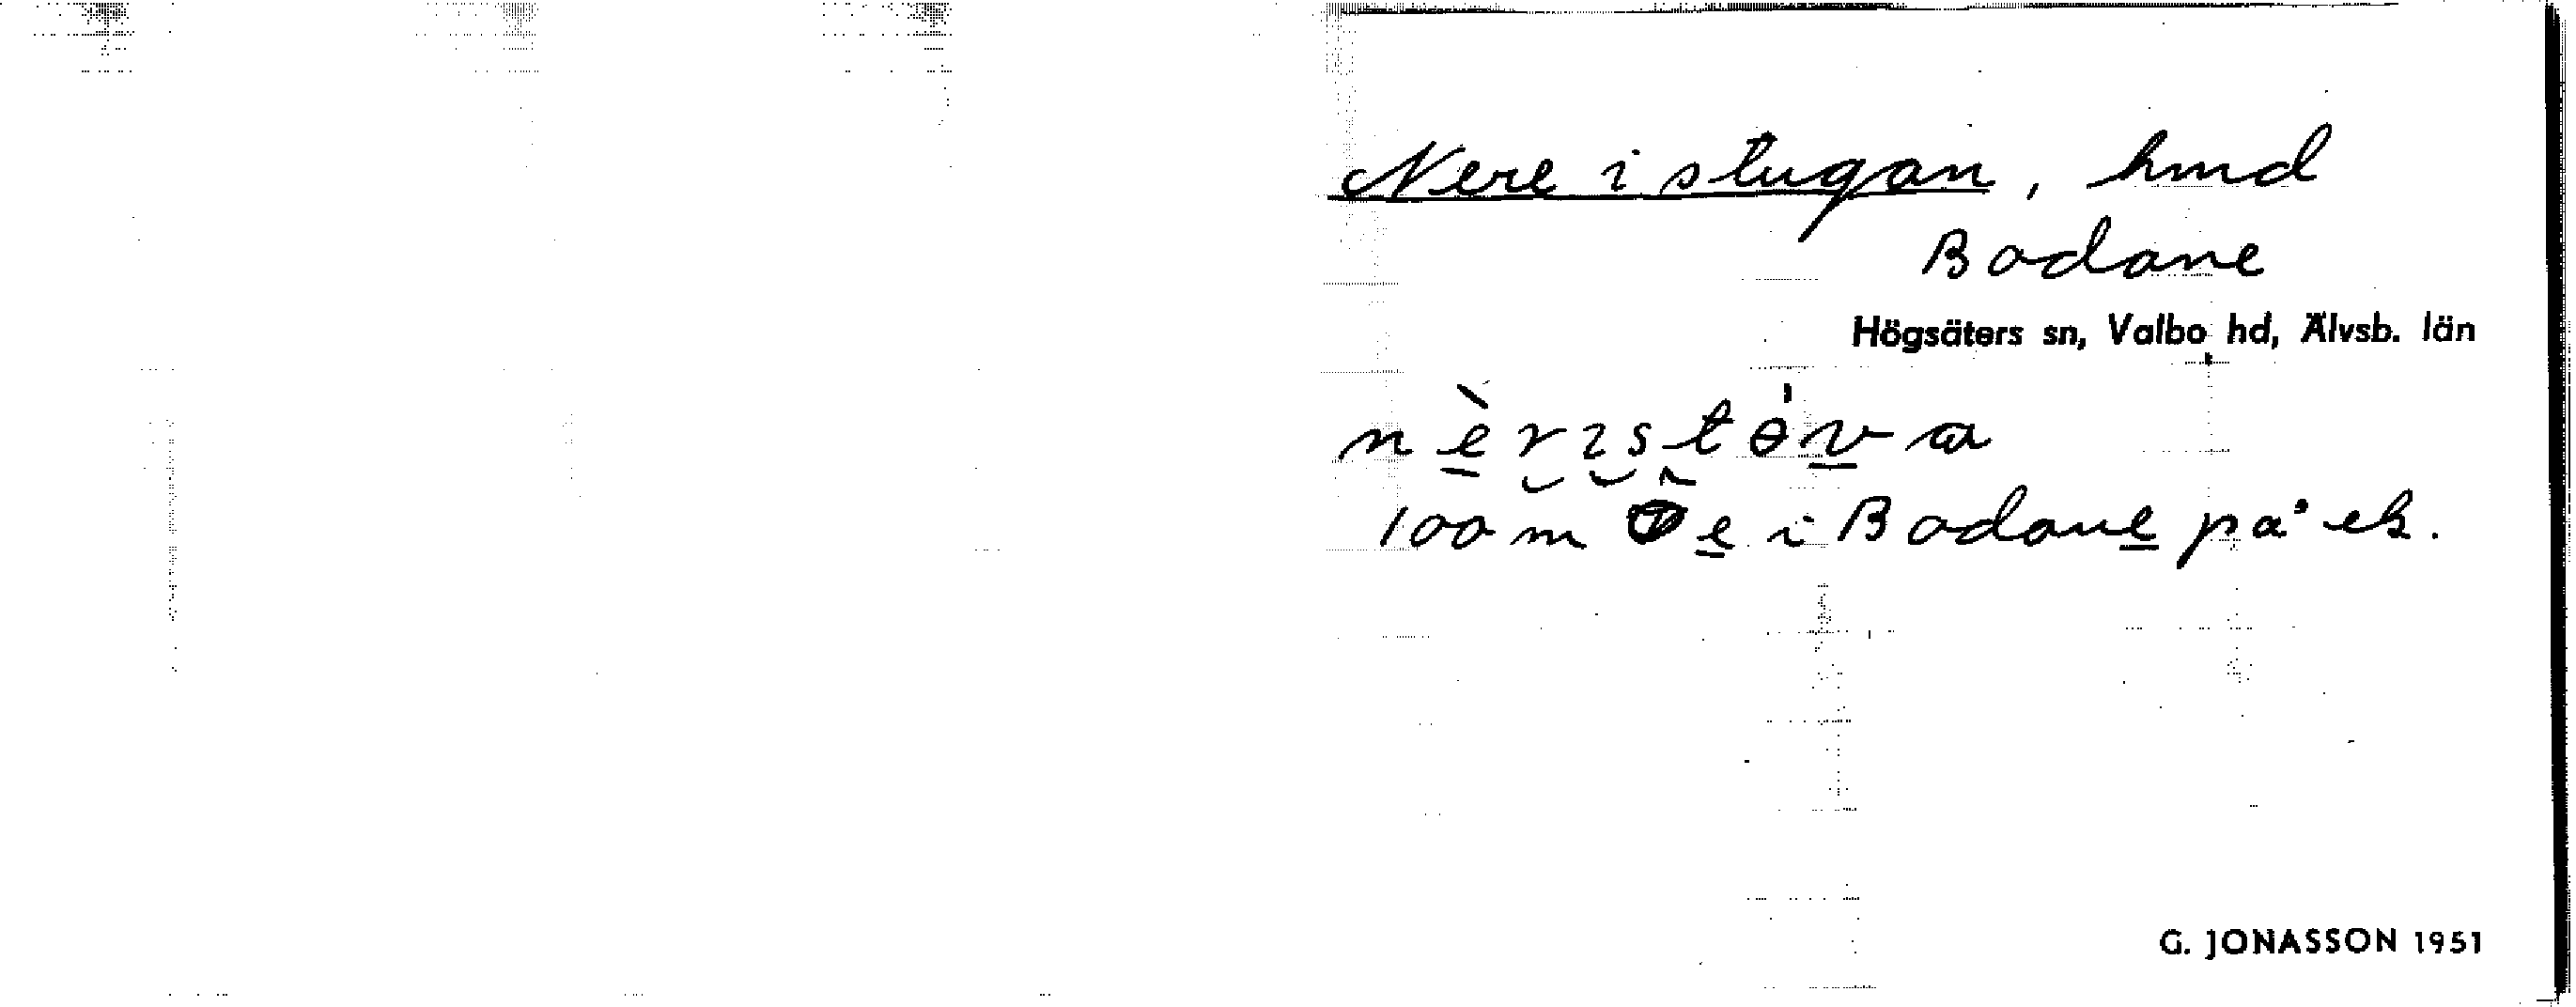 Nere i stugan, hmd
Bodane
Högsäters sn, Valbo hd, Älvsb. län
nèrıstɵ́va
100 m e i Bodane på ek.
G. JONASSON 1951